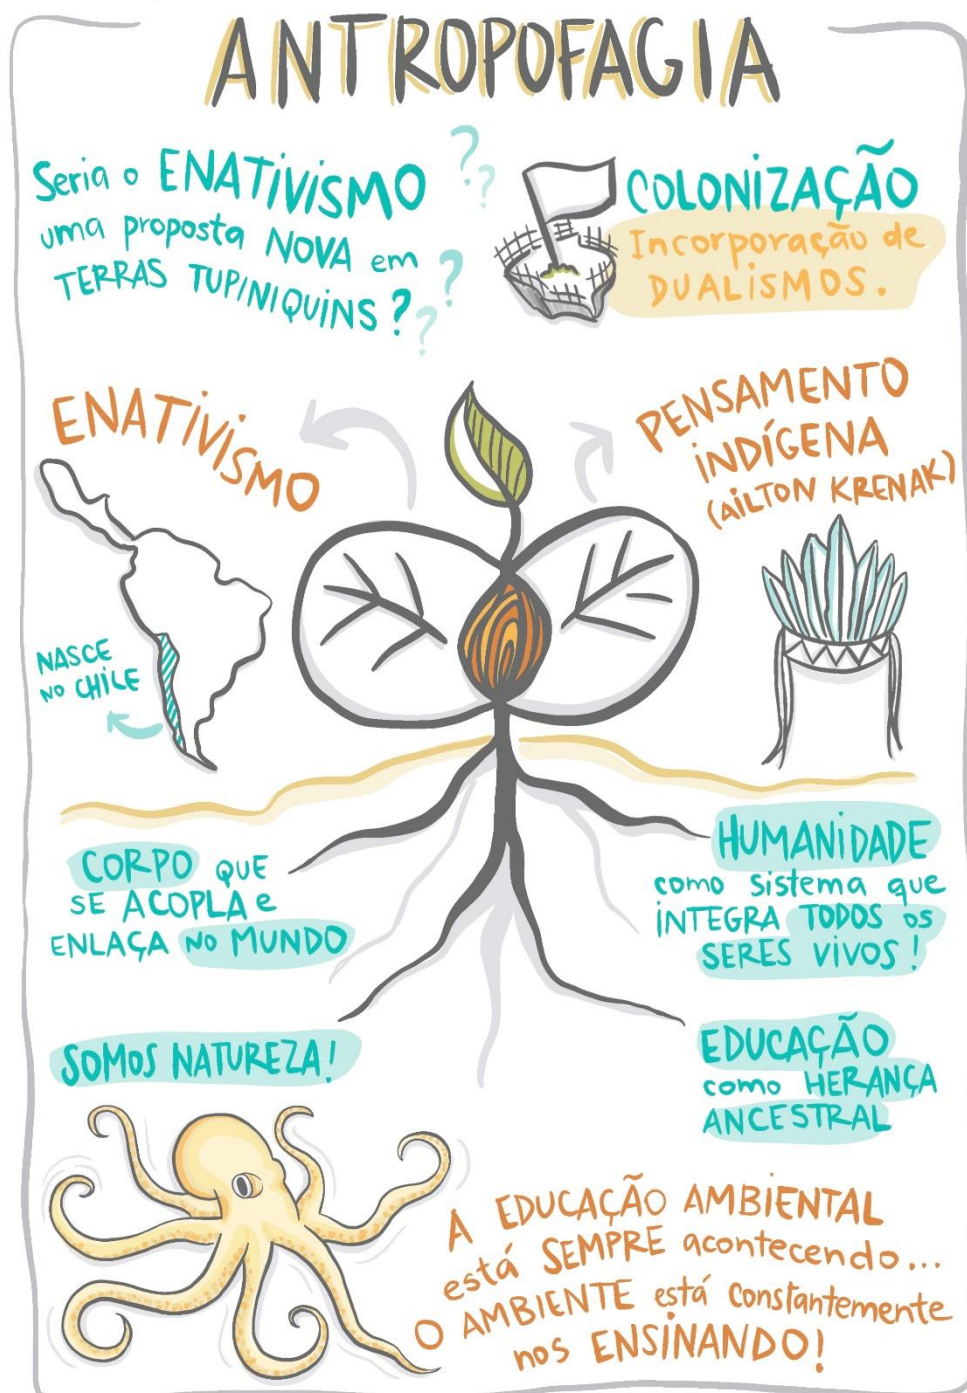 ANTROPOFAGIA
Seria o ENATIVISMO
uma proposta NOVA em
TERRAS TUPINIQUINS ?
? ? ? ?
COLONIZAÇÃO
Incorporação de
DUALISMOS.
ENATIVISMO
NASCE
NO CHILE
PENSAMENTO
INDÍGENA
(AILTON KRENAK)
CORPO QUE
SE ACOPLA e
ENLAÇA NO MUNDO
SOMOS NATUREZA!
HUMANIDADE
como sistema que
INTEGRA TODOS os
SERES VIVOS!
EDUCAÇÃO
como HERANÇA
ANCESTRAL
A EDUCAÇÃO AMBIENTAL
está SEMPRE acontecendo...
O AMBIENTE está constantemente
nos ENSINANDO!